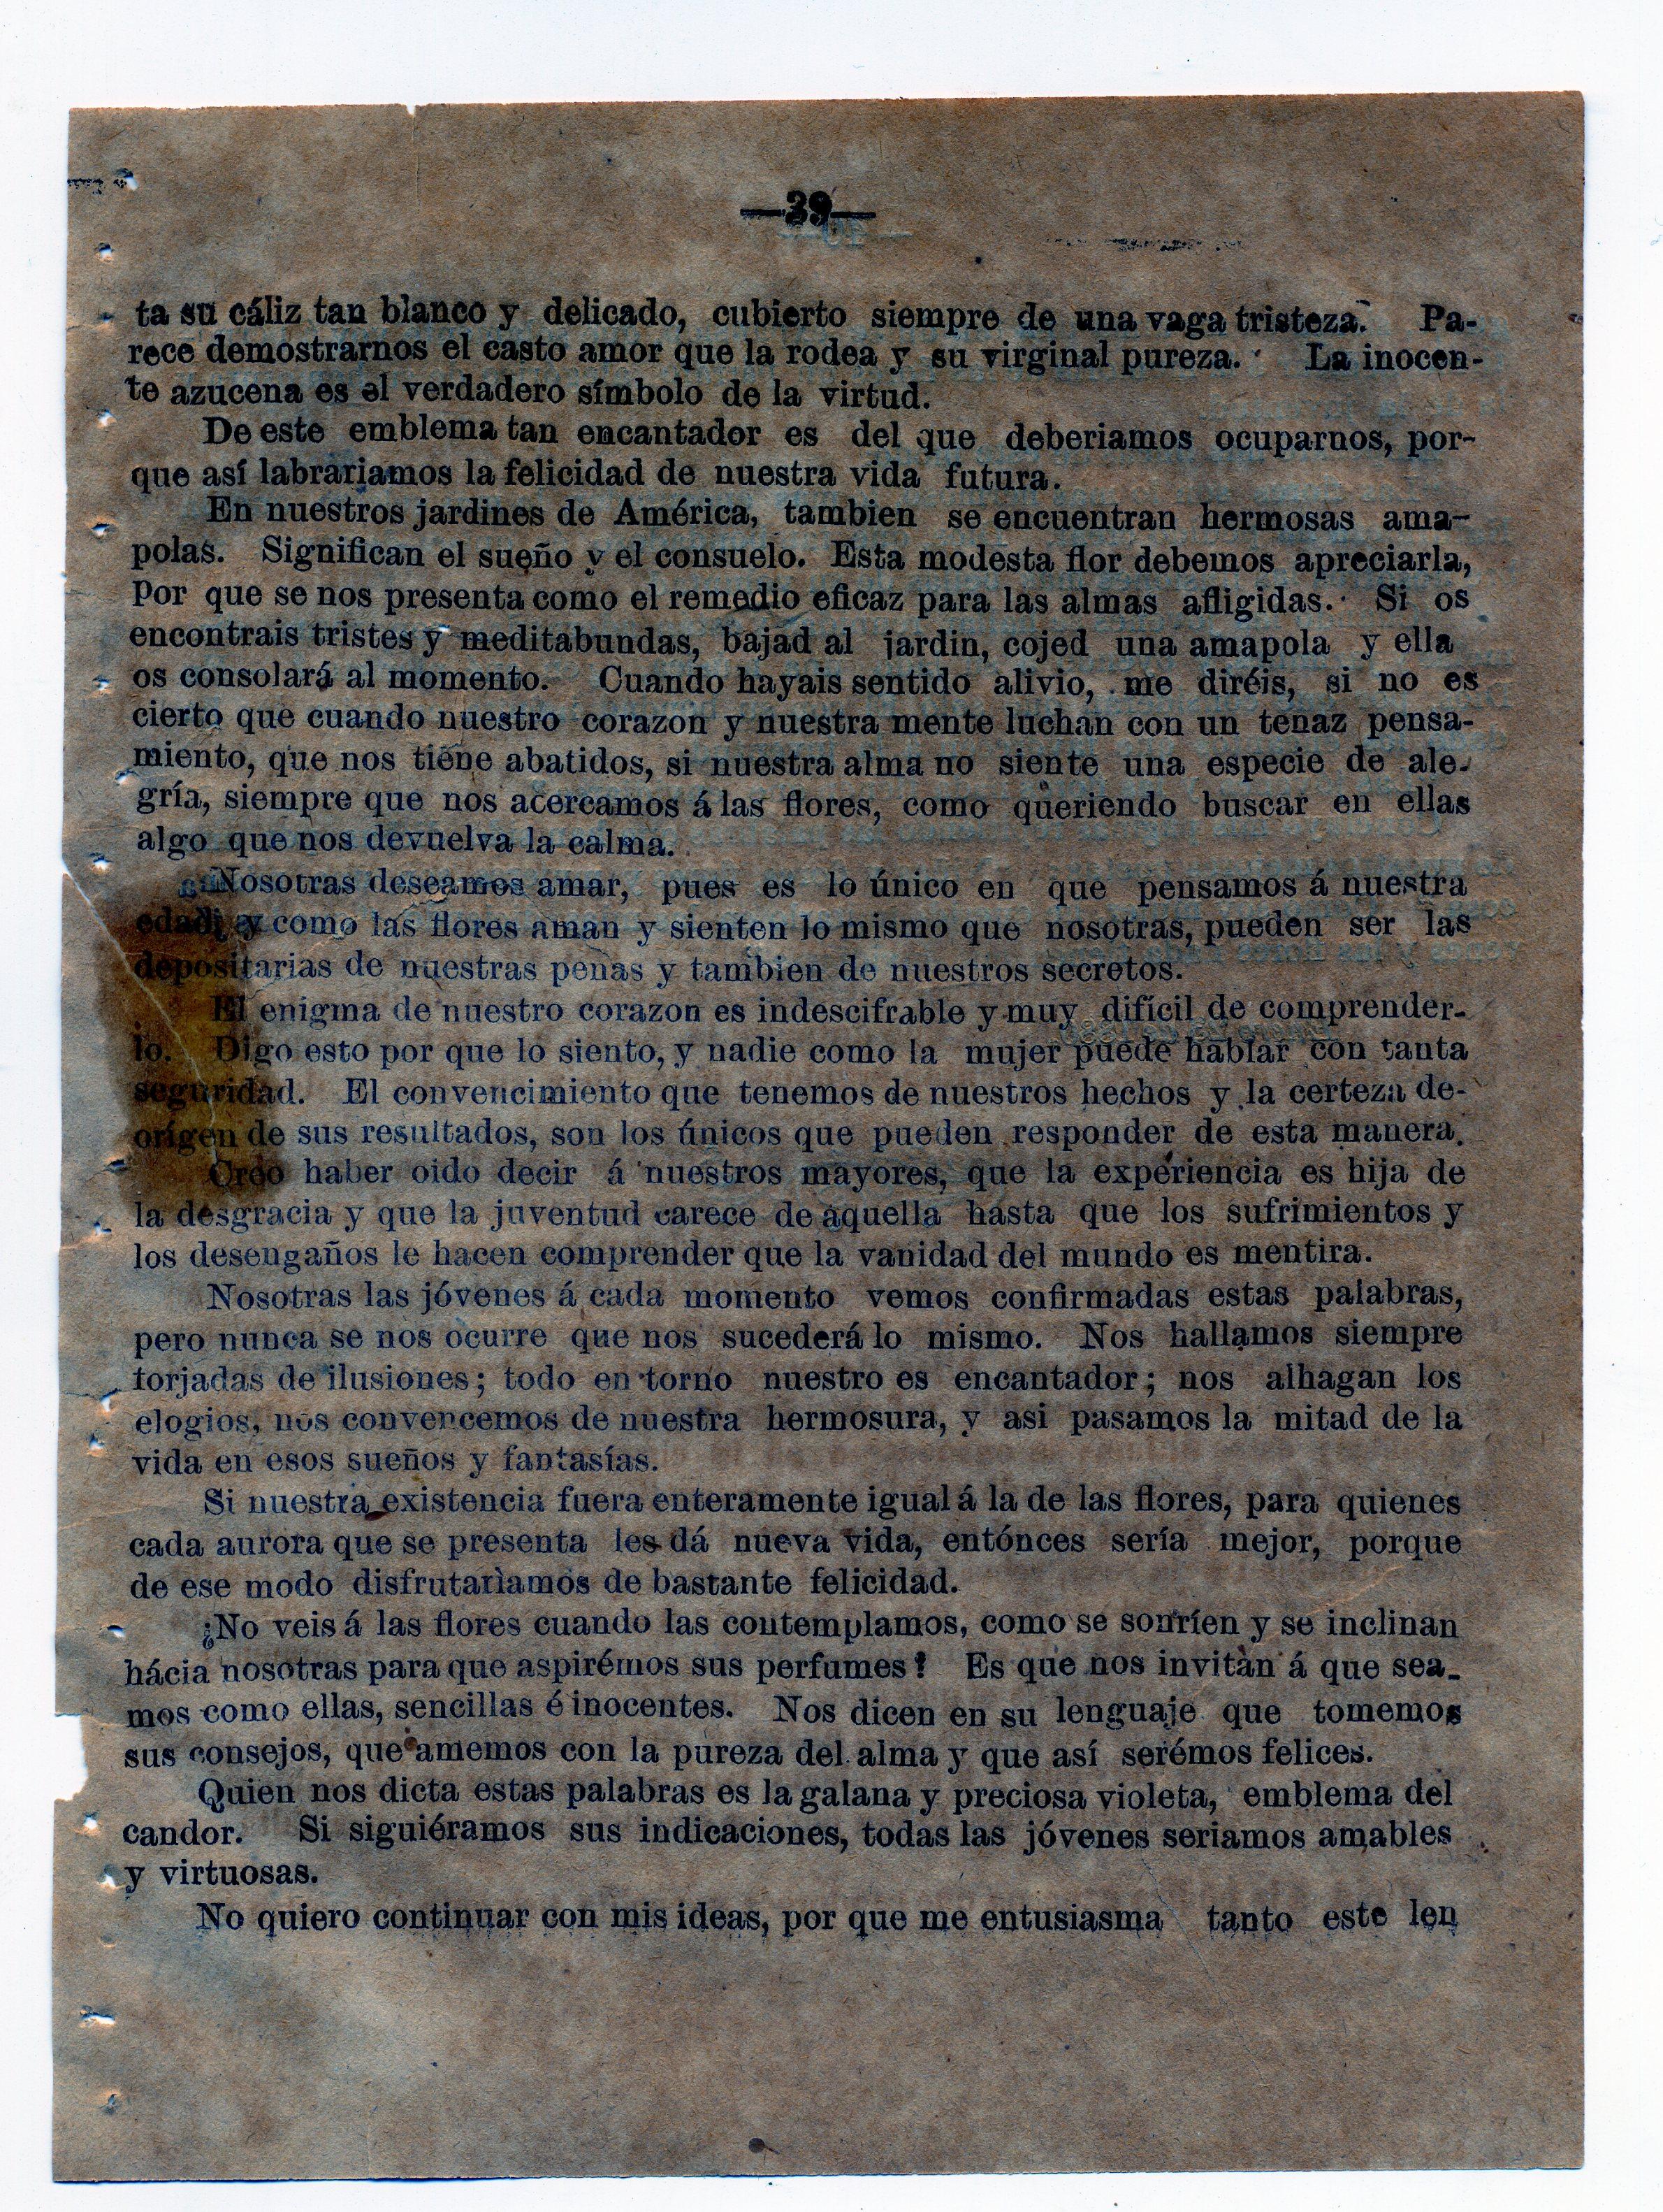 —39—
ta su cáliz tan blanco y delicado, cubierto siempre de una vaga tristeza. Pa-
rece demostrarnos el casto amor que la rodea y su virginal pureza. La inocen-
te azucena es el verdadero símbolo de la virtud.
De este emblema tan encantador es del que deberiamos ocuparnos, por-
que así labrariamos la felicidad de nuestra vida futura.
En nuestros jardines de América, tambien se encuentran hermosas ama-
polas. Significan el sueño y el consuelo. Esta modesta flor debemos apreciarla,
Por que se nos presenta como el remedio eficaz para las almas afligidas. Si os
encontrais tristes y meditabundas, bajad al jardin, cojed una amapola y ella
os consolará al momento. Cuando hayais sentido alivio, me diréis, si no es
cierto que cuando nuestro corazon y nuestra mente luchan con un tenaz pensa-
miento, que nos tiene abatidos, si nuestra alma no siente una especie de ale-
gría, siempre que nos acercamos á las flores, como queriendo buscar en ellas
algo que nos devuelva la calma.
Nosotras deseamos amar, pues es lo único en que pensamos á nuestra
edad; y como las flores aman y sienten lo mismo que nosotras, pueden ser las
depositarias de nuestras penas y tambien de nuestros secretos.
El enigma de nuestro corazon es indescifrable y muy difícil de comprender-
lo. Digo esto por que lo siento, y nadie como la mujer puede hablar con tanta
seguridad. El convencimiento que tenemos de nuestros hechos y la certeza de-
orígen de sus resultados, son los únicos que pueden responder de esta manera.
Creo haber oido decir á nuestros mayores, que la experiencia es hija de
la desgracia y que la juventud carece de aquella hasta que los sufrimientos y
los desengaños le hacen comprender que la vanidad del mundo es mentira.
Nosotras las jóvenes á cada momento vemos confirmadas estas palabras,
pero nunca se nos ocurre que nos sucederá lo mismo. Nos hallamos siempre
forjadas de ilusiones; todo en torno nuestro es encantador; nos alhagan los
elogios, nos convencemos de nuestra hermosura, y asi pasamos la mitad de la
vida en esos sueños y fantasías.
Si nuestra existencia fuera enteramente igual á la de las flores, para quienes
cada aurora que se presenta les dá nueva vida, entónces sería mejor, porque
de ese modo disfrutariamos de bastante felicidad.
¿No veis á las flores cuando las contemplamos, como se sonríen y se inclinan
hácia nosotras para que aspirémos sus perfumes? Es que nos invitan á que sea-
mos como ellas, sencillas é inocentes. Nos dicen en su lenguaje que tomemos
sus consejos, que amemos con la pureza del alma y que así serémos felices.
Quien nos dicta estas palabras es la galana y preciosa violeta, emblema del
candor. Si siguiéramos sus indicaciones, todas las jóvenes seriamos amables
y virtuosas.
No quiero continuar con mis ideas, por que me entusiasma tanto este len